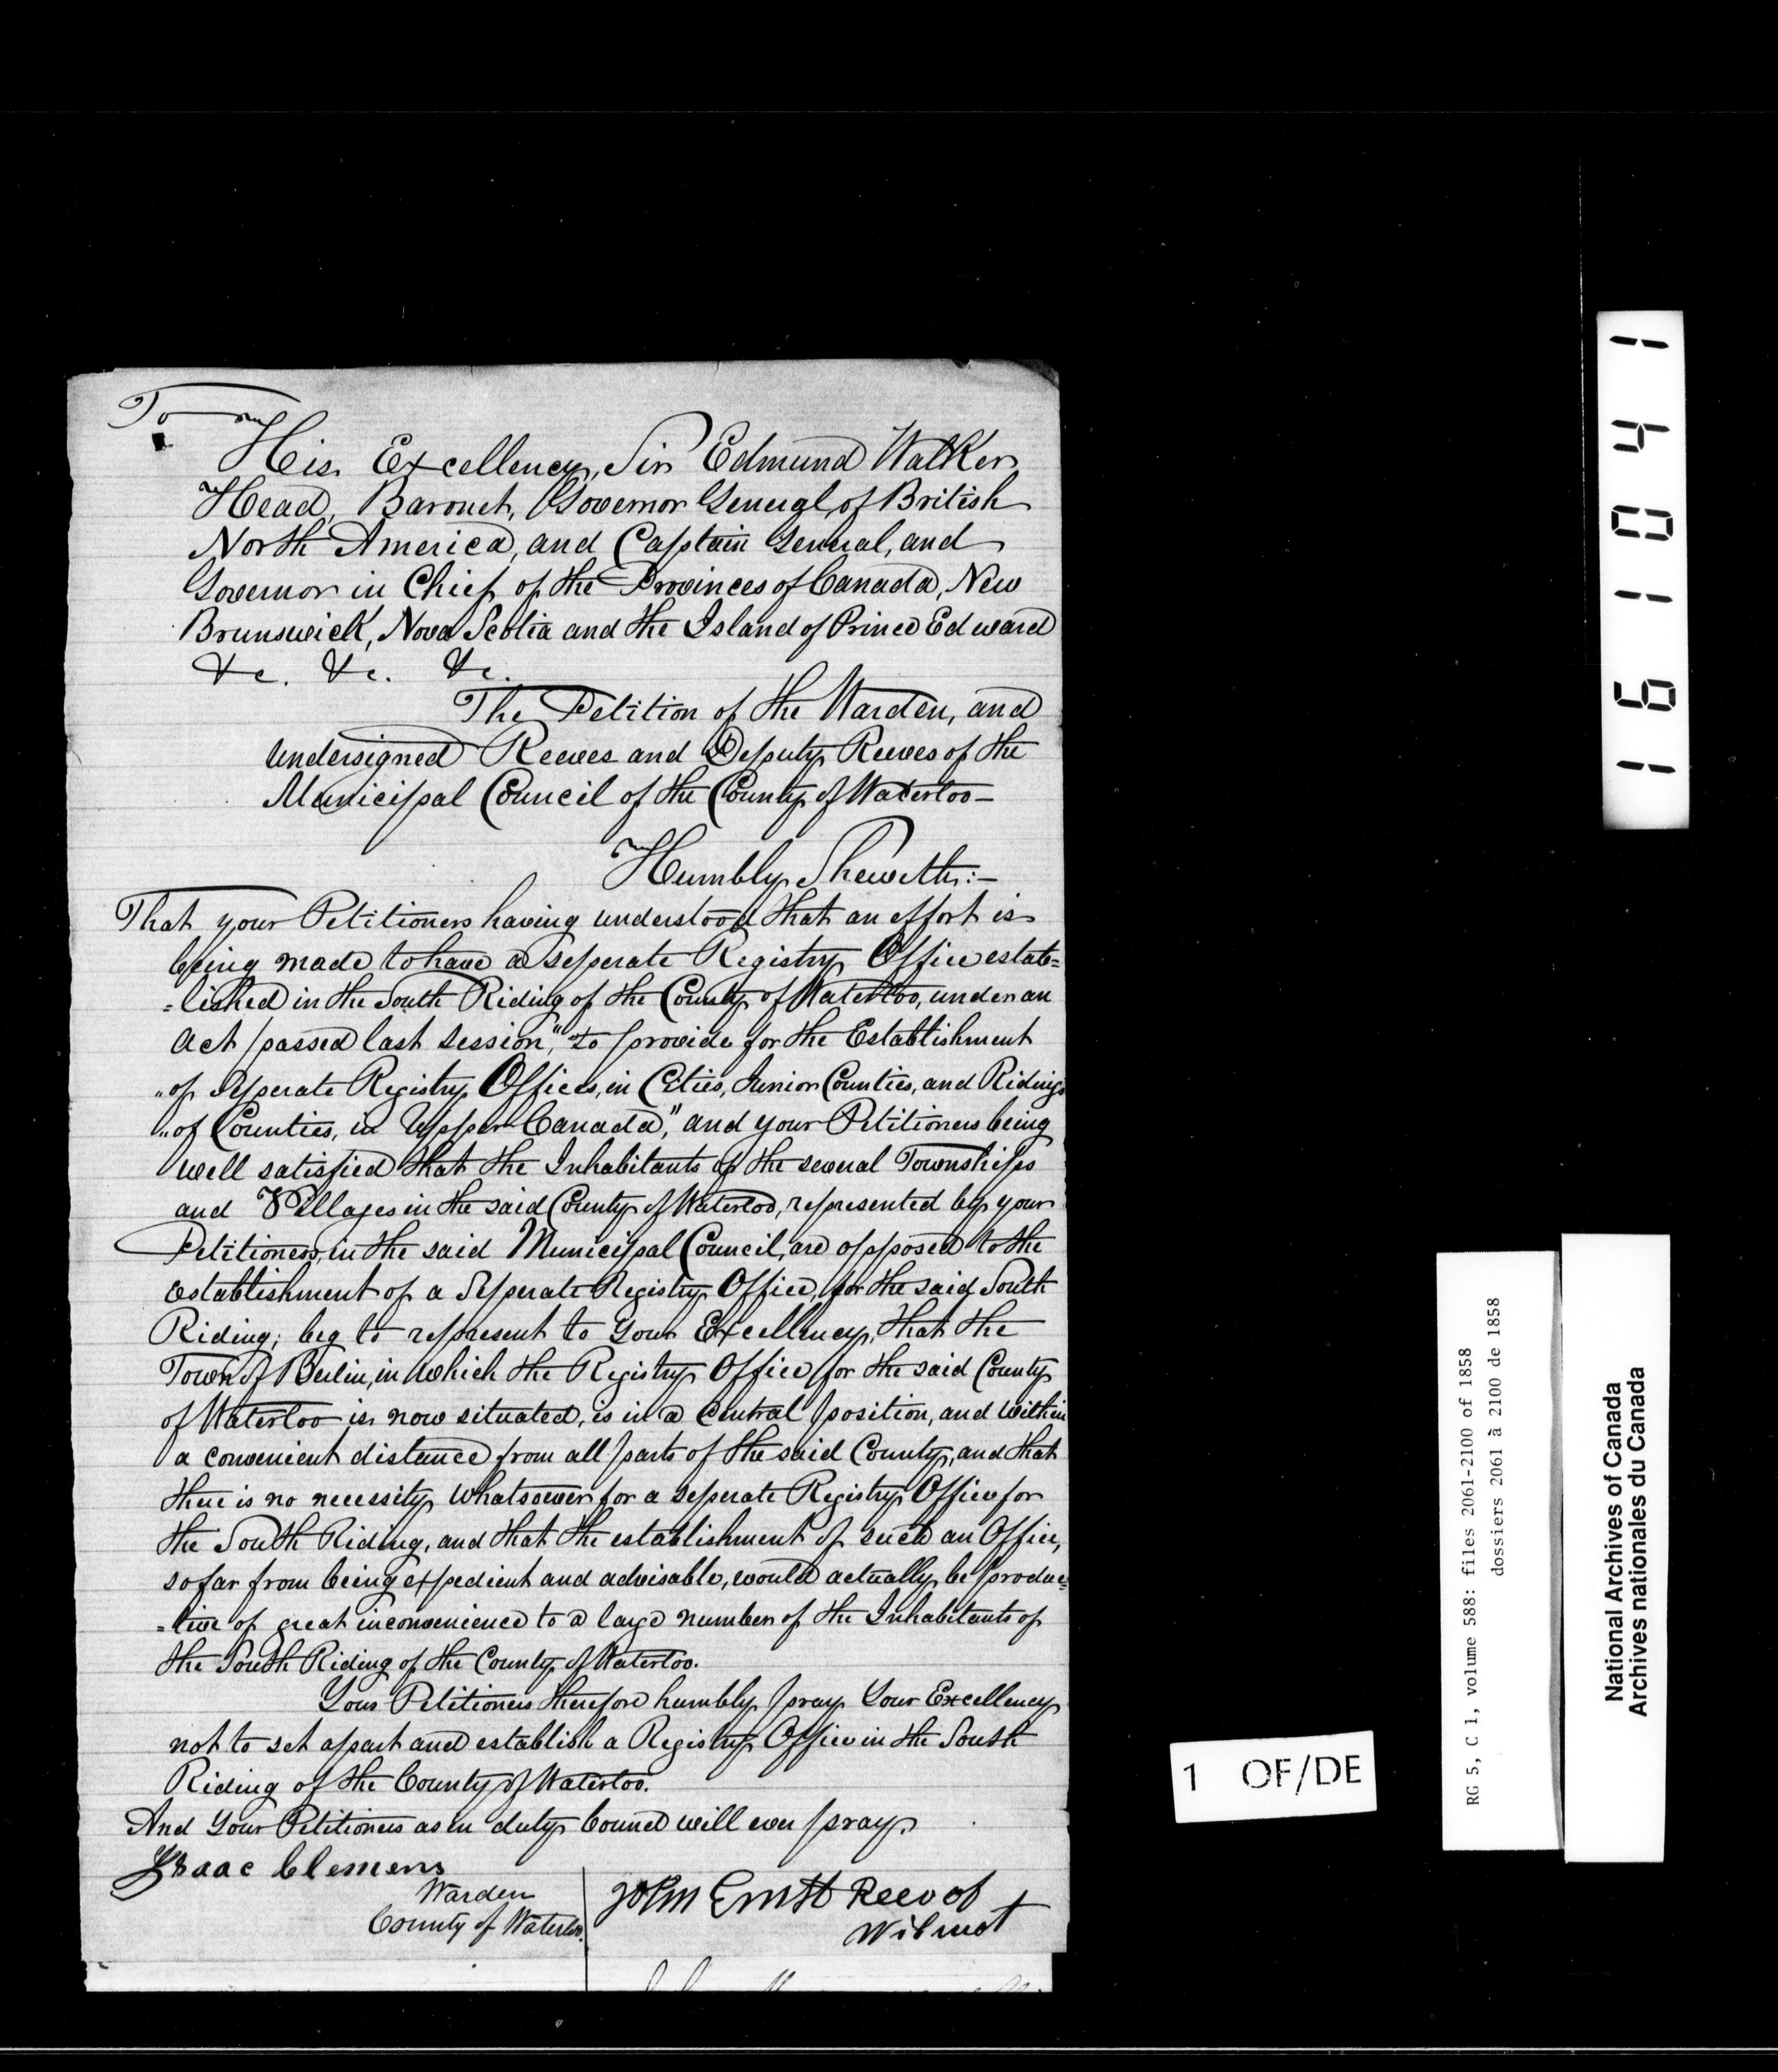 To
His Excellency, Sir Edmund Walker
Head, Baronet, Governor General of British
North America, and Captain General, and
Governor in Chief of the Provinces of Canada, New
Brunswick, Nova Scotia and the Island of Prince Edward
&c. &c. &c.
The Petition of the Warden, and
undersigned Reeves and Deputy Reeves of the
Municipal Council of the County of Waterloo—
Humbly Sheweth:—
That your Petitioners having understood that an effort is
being made to have a seperate Registry Office estab=
=lished in the South Riding of the County of Waterloo, under an
act passed last session, "to provide for the Establishment
"of Seperate Registry Offices, in Cities, Junior Counties, and Ridings
"of Counties, in Upper Canada", and your Petitioners being
well satisfied that the Inhabitants of the several Townships
and Villages in the said County of Waterloo, represented by your
Petitioners, in the said Municipal Council, are opposed to the
establishment of a Seperate Registry Office, for the said South
Riding; beg to represent to Your Excellency, that the
Town of Berlin, in which the Registry Office for the said County
of Waterloo is now situated, is in a central position, and within
a convenient distance from all parts of the said County, and that
there is no necessity whatsoever for a seperate Registry Office for
the South Riding, and that the establishment of such an Office,
so far from being expedient and advisable, would actually be produc=
=tive of great inconvenience to a large number of the Inhabitants of
the South Riding of the County of Waterloo.
Your Petitioners therefore humbly pray Your Excellency
not to set apart and establish a Registry Office in the South
Riding of the County of Waterloo.
And Your Petitioners as in duty bound will ever pray.
Isaac Clemens
Warden
County of Waterloo.
John Ernst Reev of
Wilmot
161041
1 OF/DE
RG 5, C 1, volume 588: files 2061-2100 of 1858
dossiers 2061 à 2100 de 1858
National Archives of Canada
Archives nationales du Canada